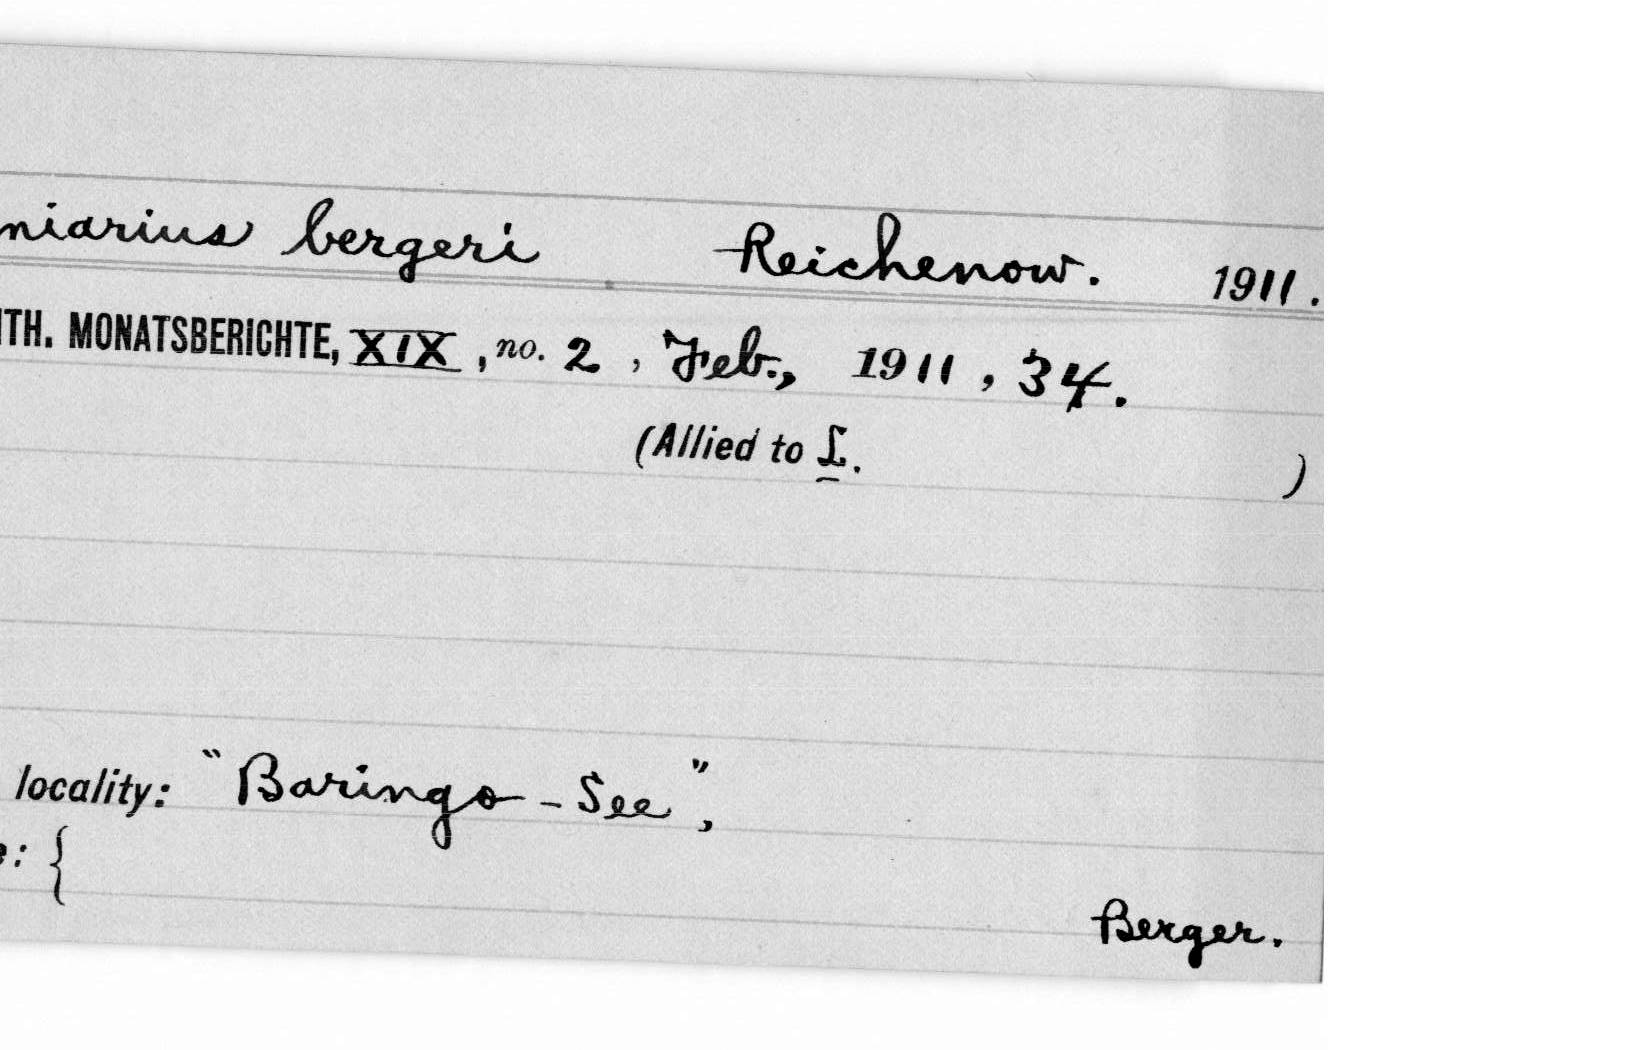 niarius bergeri Reichenow. 1911.
ITH. MONATSBERICHTE, XIX, no. 2, Feb., 1911, 34.
(Allied to L. )
locality: "Baringo-See",
e: {
Berger.